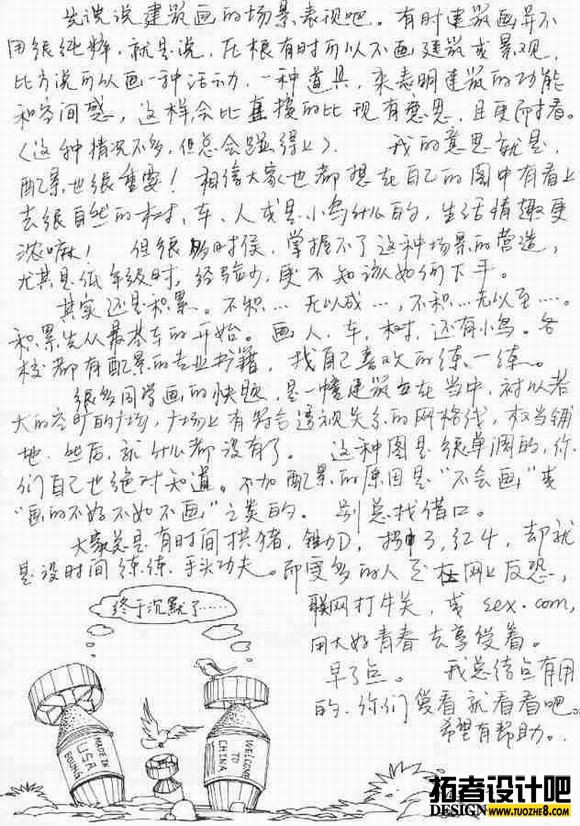 先说说建筑画的场景表现吧。有时建筑画并不
用很纯粹,就是说,在根有时可以不画建筑或景观,
比方说可以画一种活动,一种道具,来表明建筑的功能
和空间感,这样会比直接的比现有意思,且更耐看。
(这种情况不多,但总会碰得上)。 我的意思就是,
配景也很重要!相信大家也都想在自己的图中有看上
去很自然的树、车、人或是小鸟什么的,生活情趣更
浓嘛! 但很多时候,掌握不了这种场景的营造,
尤其是低年级时,经验少,更不知该如何下手。
其实还是积累。不积…无以成…,不积…无以至…。
积累先从最基本的开始。画人、车、树,还有小鸟。各
校都有配景的专业书籍,找自己喜欢的练一练。
很多同学画的快题,是一幢建筑立在当中,衬以若
大的空旷的广场,广场上有符合透视关系的网格线,权当铺
地,然后,就什么都没有了。 这种图是很单调的,你
们自己也绝对知道。不加配景的原因是“不会画”或
“画的不好不如不画”之类的。 别总找借口。
大家总是有时间拱猪,锄刀,拐3,红4,却就
是没时间练练手头功夫。即更多的人是在网上反恐,
联网打牛关,或sex.com,
用大好青春去享受着。
早了点。 我总结点有用
的,你们爱看就看看吧。
希望有帮助。
终于沉默了……
MADE IN
USA
BOEING
WELCOME
TO
CHINA
拓者设计吧
DESIGN WWW.TUOZHE8.COM